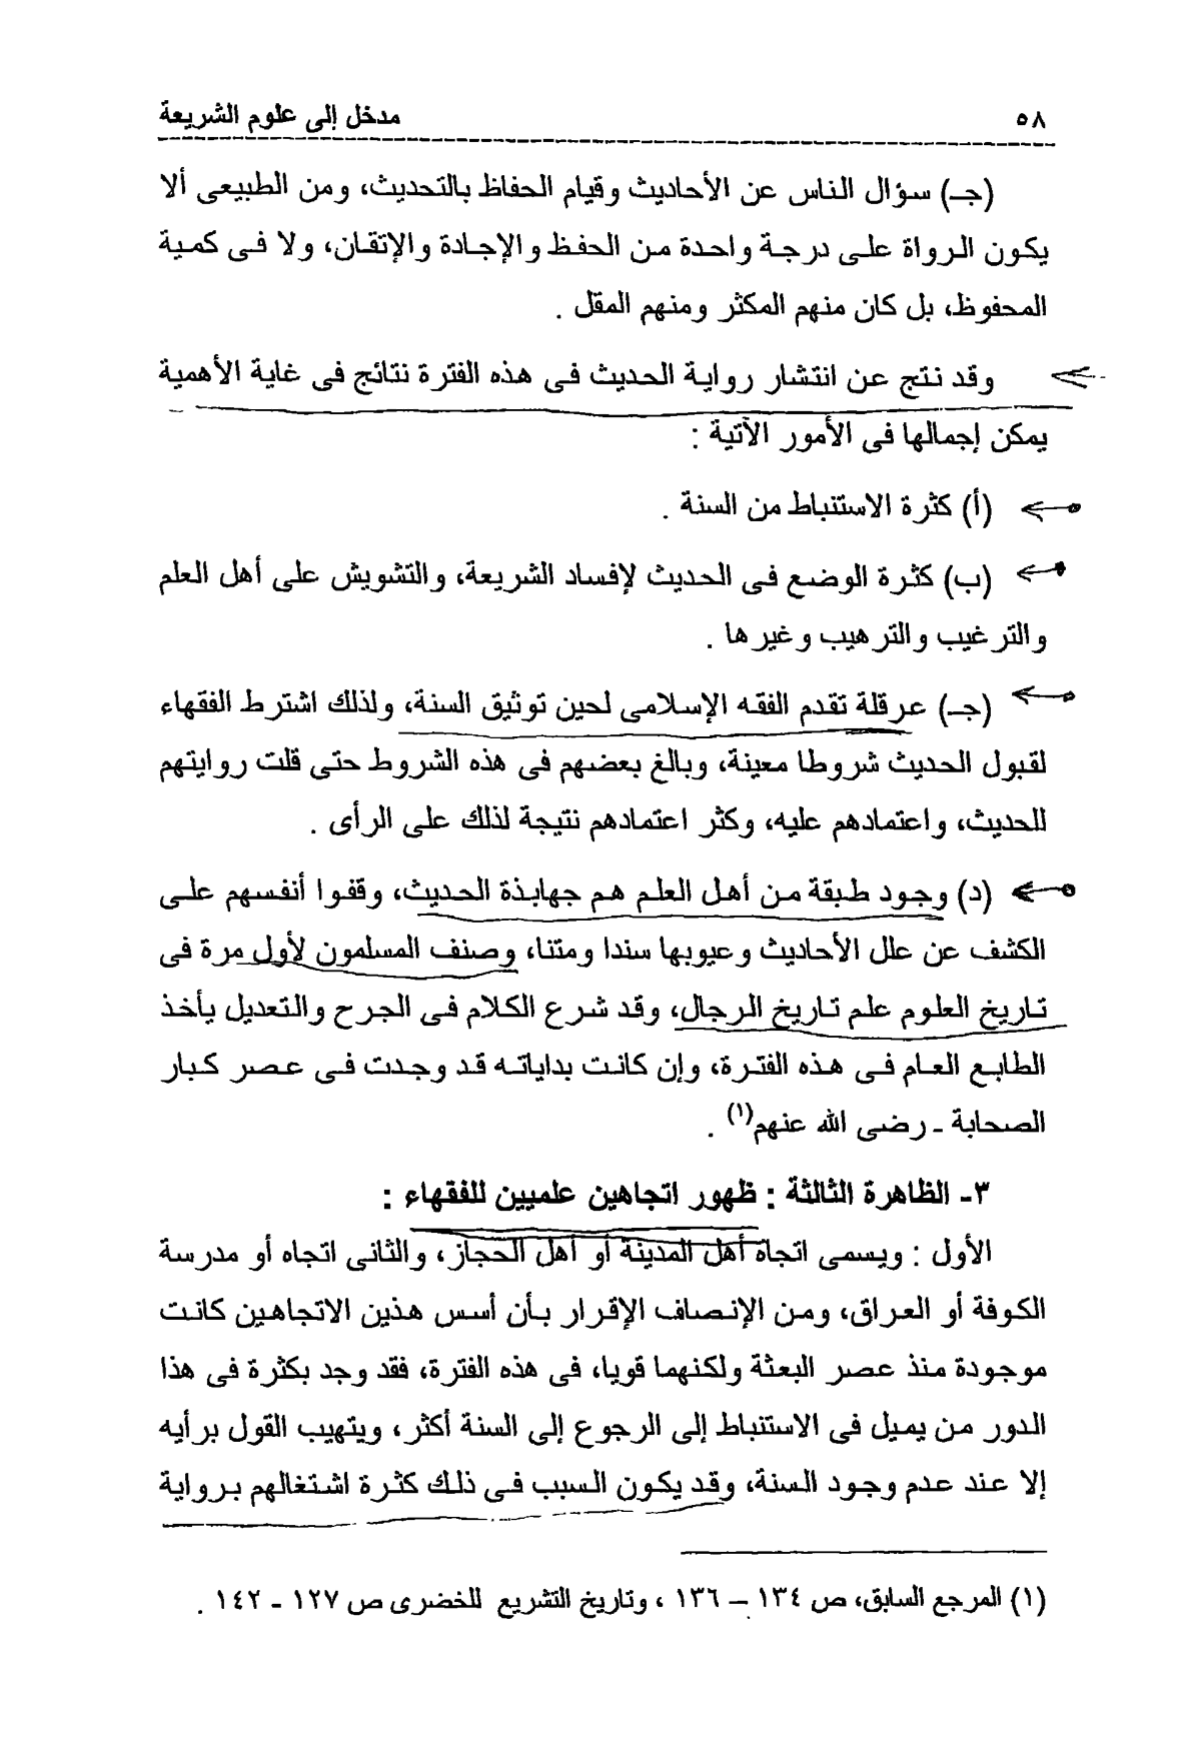 ٥٨
مدخل إلى علوم الشريعة
(جـ) سؤال الناس عن الأحاديث وقيام الحفاظ بالتحديث، ومن الطبيعى ألا
يكون الرواة على درجة واحدة من الحفظ والإجادة والإتقان، ولا فى كمية
المحفوظ، بل كان منهم المكثر ومنهم المقل .
وقد نتج عن انتشار رواية الحديث فى هذه الفترة نتائج فى غاية الأهمية
يمكن إجمالها فى الأمور الآتية :
(أ) كثرة الاستنباط من السنة .
(ب) كثرة الوضع فى الحديث لإفساد الشريعة، والتشويش على أهل العلم
والترغيب والترهيب وغيرها .
(جـ) عرقلة تقدم الفقه الإسلامى لحين توثيق السنة، ولذلك اشترط الفقهاء
لقبول الحديث شروطا معينة، وبالغ بعضهم فى هذه الشروط حتى قلت روايتهم
للحديث، واعتمادهم عليه، وكثر اعتمادهم نتيجة لذلك على الرأى .
(د) وجود طبقة من أهل العلم هم جهابذة الحديث، وقفوا أنفسهم على
الكشف عن علل الأحاديث وعيوبها سندا ومتنا، وصنف المسلمون لأول مرة فى
تاريخ العلوم علم تاريخ الرجال، وقد شرع الكلام فى الجرح والتعديل يأخذ
الطابع العام فى هذه الفترة، وإن كانت بداياته قد وجدت فى عصر كبار
الصحابة ـ رضى الله عنهم(١) .
٣ـ الظاهرة الثالثة : ظهور اتجاهين علميين للفقهاء :
الأول : ويسمى اتجاه أهل المدينة أو أهل الحجاز، والثانى اتجاه أو مدرسة
الكوفة أو العراق، ومن الإنصاف الإقرار بأن أسس هذين الاتجاهين كانت
موجودة منذ عصر البعثة ولكنهما قويا، فى هذه الفترة، فقد وجد بكثرة فى هذا
الدور من يميل فى الاستنباط إلى الرجوع إلى السنة أكثر، ويتهيب القول برأيه
إلا عند عدم وجود السنة، وقد يكون السبب فى ذلك كثرة اشتغالهم برواية
(١) المرجع السابق، ص ١٣٤ – ١٣٦ ، وتاريخ التشريع للخضرى ص ١٢٧ ـ ١٤٢ .